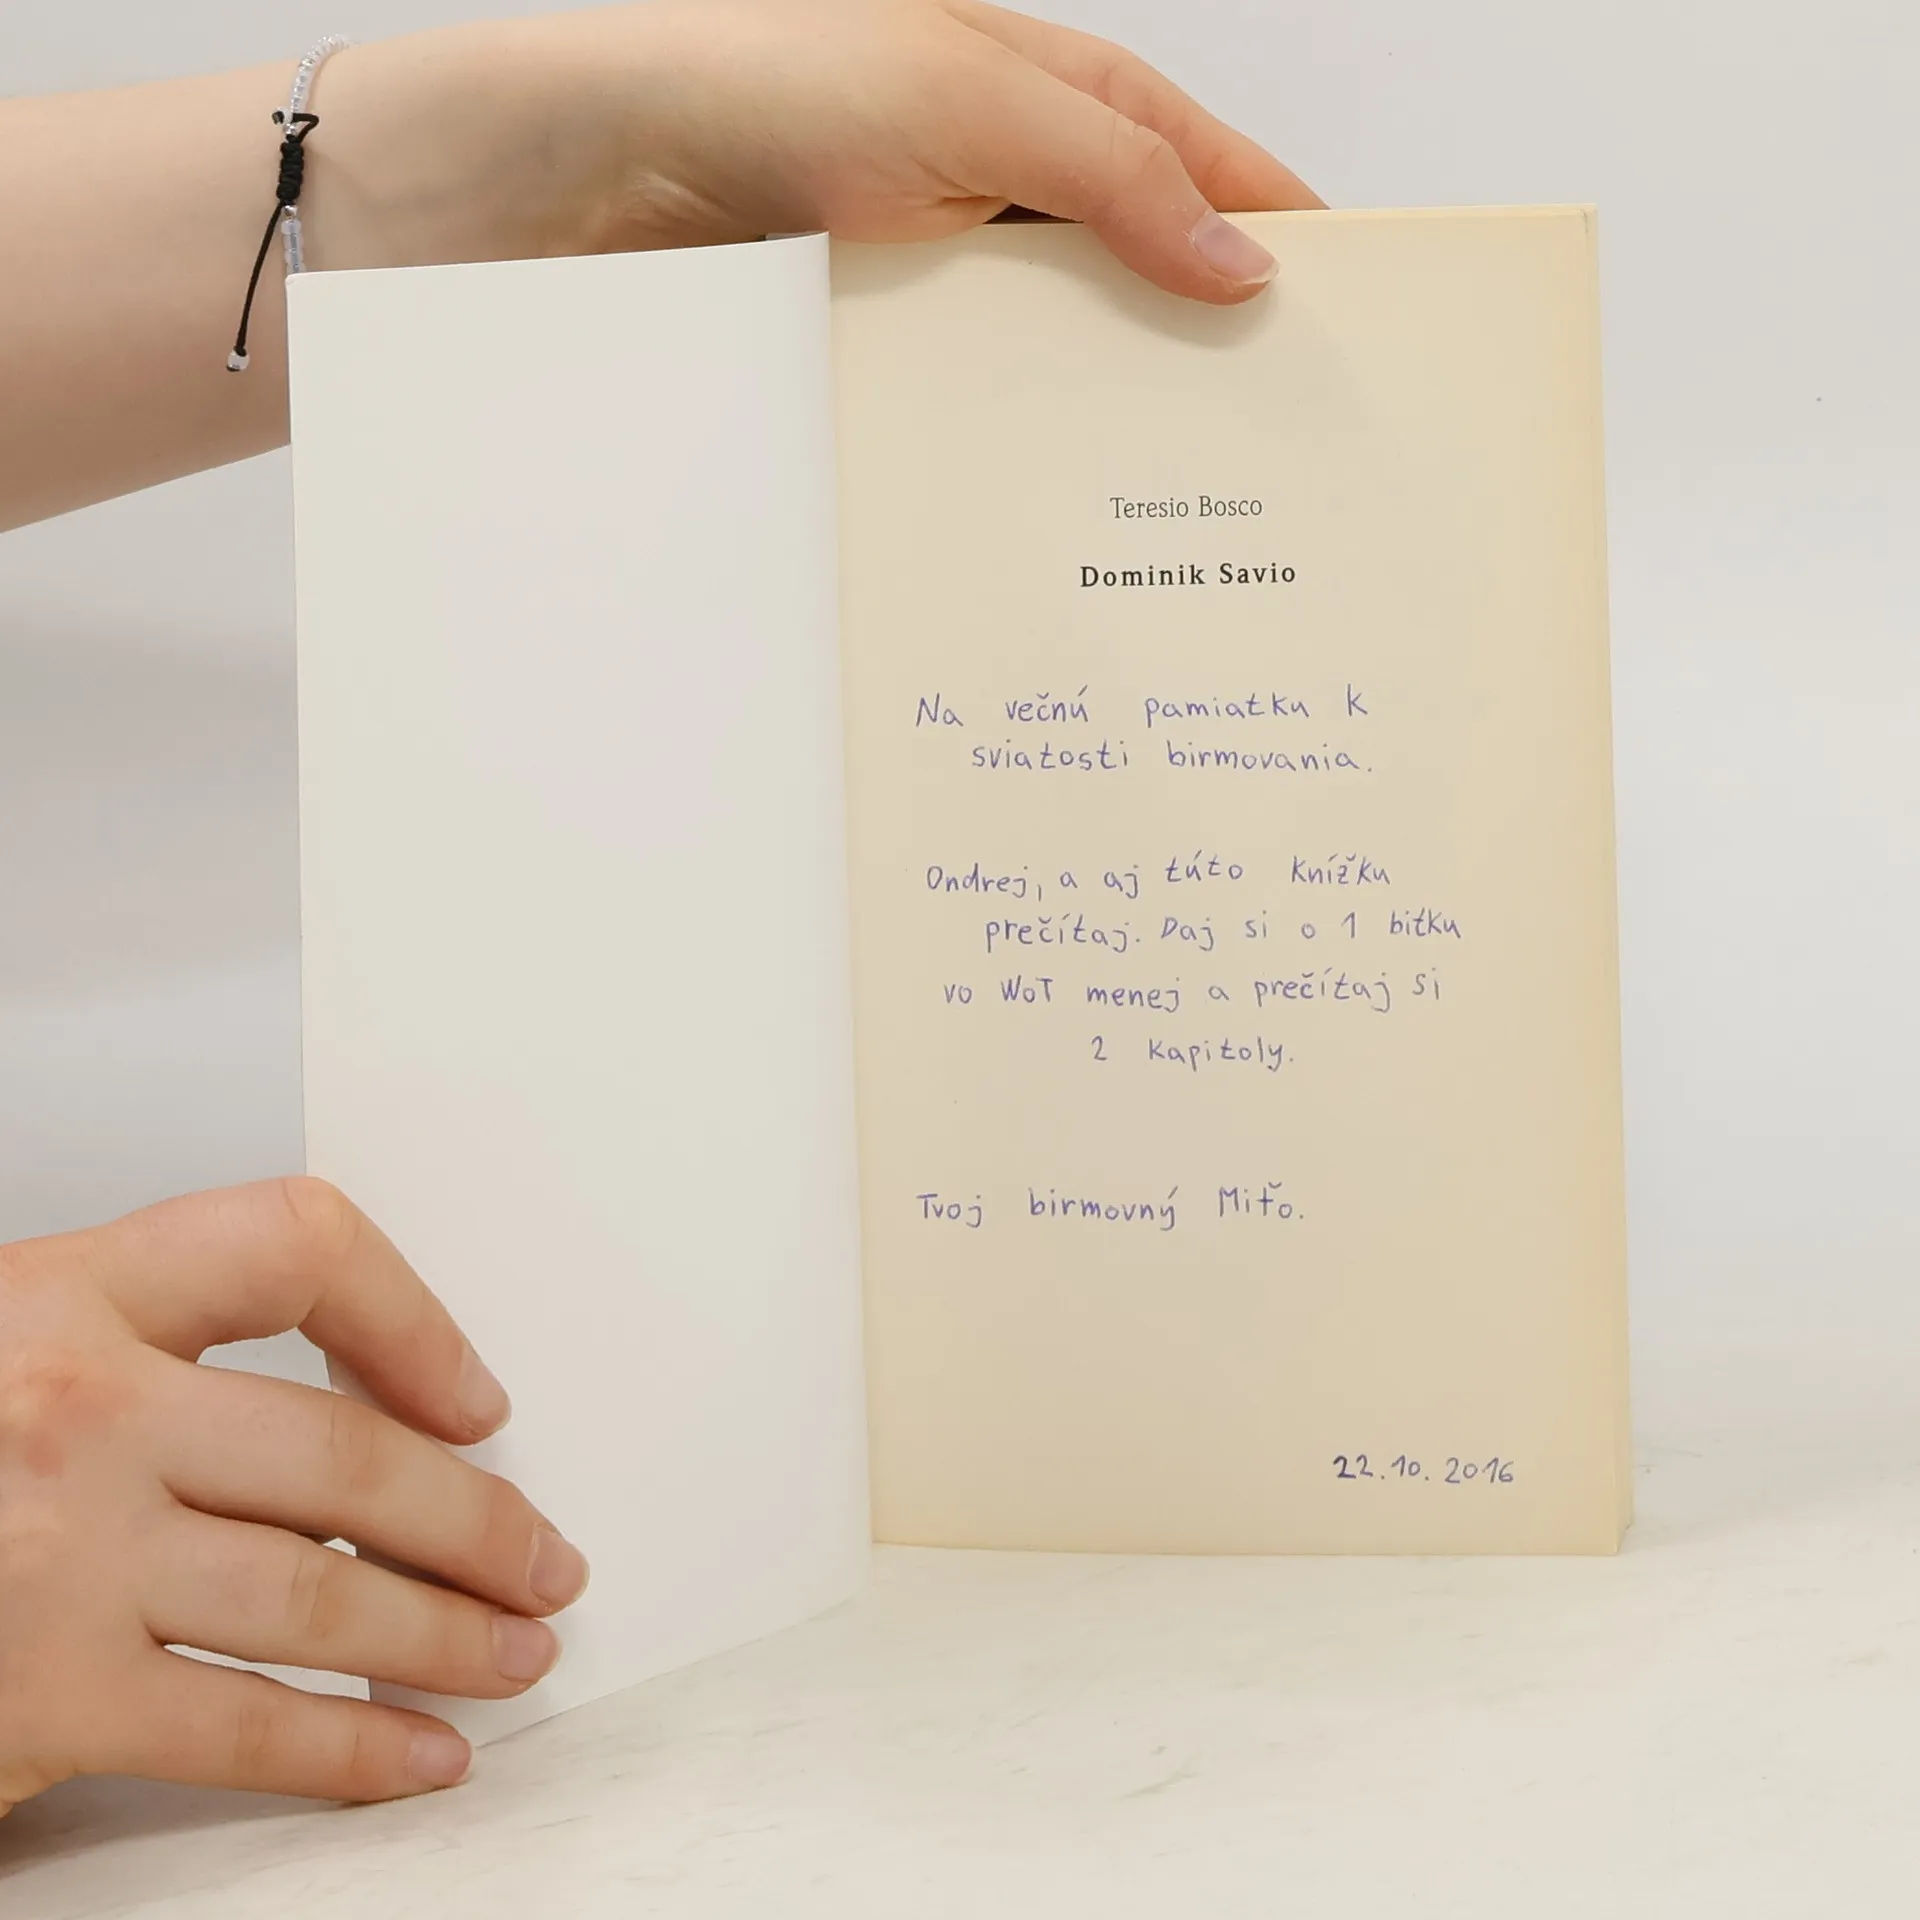 Teresio Bosco
Dominik Savio
Na večnú pamiatku k
sviatosti birmovania.
Ondrej, a aj túto knížku
prečítaj. Daj si o 1 bitku
vo WoT menej a prečítaj si
2 kapitoly.
Tvoj birmovný Miťo.
22.10.2016